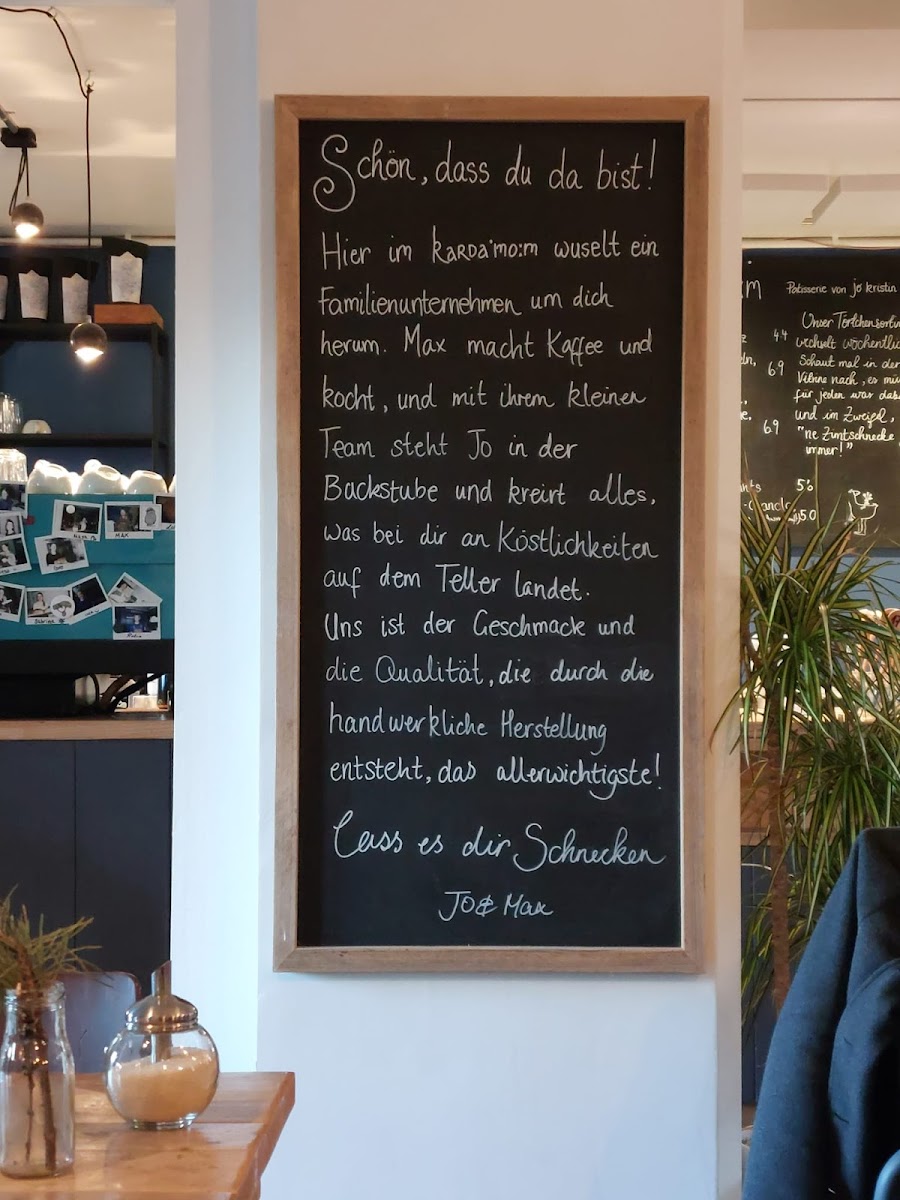 Schön, dass du da bist!
Hier im KARDA'MO:M wuselt ein
Familienunternehmen um dich
herum. Max macht Kaffee und
kocht, und mit ihrem kleinen
Team steht Jo in der
Backstube und kreirt alles,
was bei dir an Köstlichkeiten
auf dem Teller landet.
Uns ist der Geschmack und
die Qualität, die durch die
handwerkliche Herstellung
entsteht, das allerwichtigste!
Lass es dir Schnecken
Jo & Max
Patisserie von jo kristin
Unser Törtchensorti
4.4 wechselt wöchentlic
Schaut mal in der
6.9 Vitrine nach, es
für jeden was dab
und im Zweifel,
6.9 "ne Zimtschnecke
immer!"
5.0
5.0
MAX